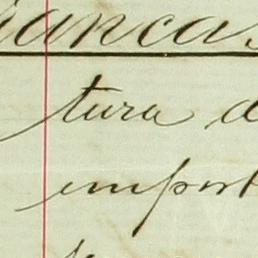 ancas
tura d
import